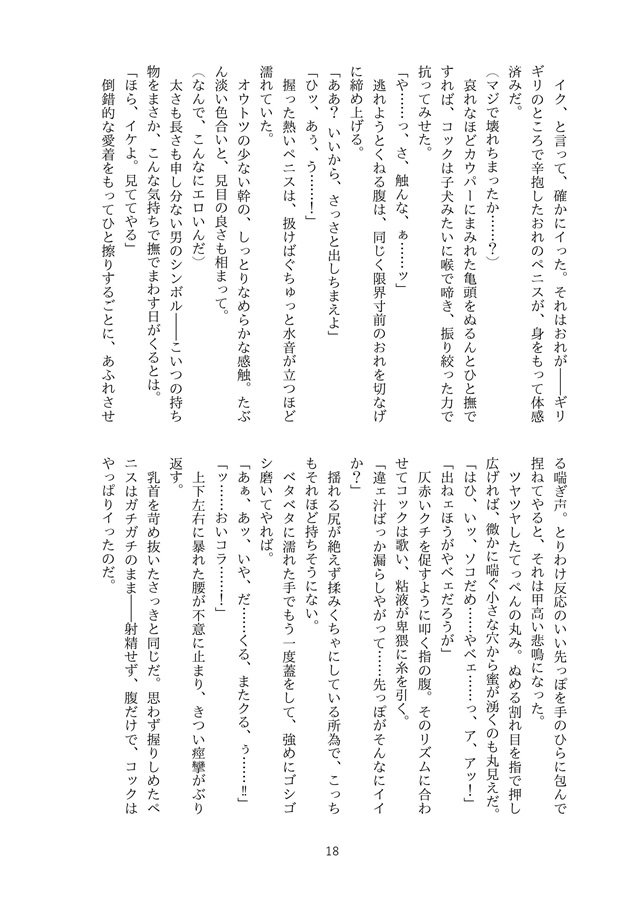 イク、と言って、確かにイった。それはおれが――ギリ
ギリのところで辛抱したおれのペニスが、身をもって体感
済みだ。
(マジで壊れちまったか……？)
哀れなほどカウパーにまみれた亀頭をぬるんとひと撫で
すれば、コックは子犬みたいに喉で啼き、振り絞った力で
抗ってみせた。
「や……っ、さ、触んな、ぁ……ッ」
逃れようとくねる腹は、同じく限界寸前のおれを切なげ
に締め上げる。
「ああ？ いいから、さっさと出しちまえよ」
「ひッ、あぅ、う……！」
握った熱いペニスは、扱けばぐちゅっと水音が立つほど
濡れていた。
オウトツの少ない幹の、しっとりなめらかな感触。たぶ
ん淡い色合いと、見目の良さも相まって。
(なんで、こんなにエロいんだ)
太さも長さも申し分ない男のシンボル――こいつの持ち
物をまさか、こんな気持ちで撫でまわす日がくるとは。
「ほら、イケよ。見ててやる」
倒錯的な愛着をもってひと擦りするごとに、あふれさせ
る喘ぎ声。とりわけ反応のいい先っぽを手のひらに包んで
捏ねてやると、それは甲高い悲鳴になった。
ツヤツヤしたてっぺんの丸み。ぬめる割れ目を指で押し
広げれば、微かに喘ぐ小さな穴から蜜が湧くのも丸見えだ。
「はひ、いッ、ソコだめ……やべェ……っ、ア、アッ！」
「出ねェほうがやべェだろうが」
仄赤いクチを促すように叩く指の腹。そのリズムに合わ
せてコックは歌い、粘液が卑猥に糸を引く。
「違ェ汁ばっか漏らしやがって……先っぽがそんなにイイ
か？」
揺れる尻が絶えず揉みくちゃにしている所為で、こっち
もそれほど持ちそうにない。
ベタベタに濡れた手でもう一度蓋をして、強めにゴシゴ
シ磨いてやれば。
「あぁ、あッ、いや、だ……くる、またクる、ぅ……!!」
「ッ……おいコラ……！」
上下左右に暴れた腰が不意に止まり、きつい痙攣がぶり
返す。
乳首を苛め抜いたさっきと同じだ。思わず握りしめたペ
ニスはガチガチのまま――射精せず、腹だけで、コックは
やっぱりイったのだ。
18